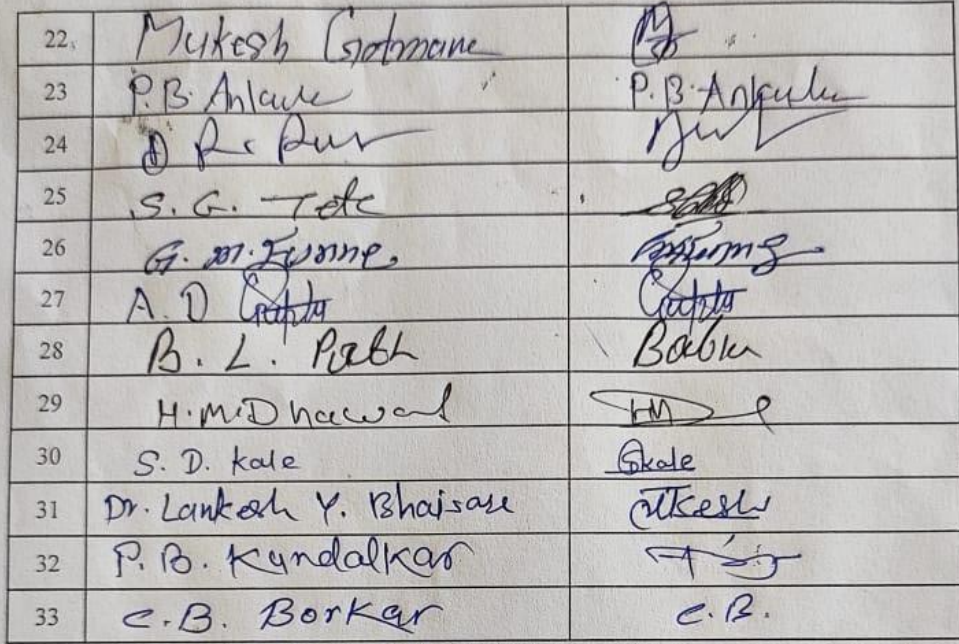 22. Mukesh Gotmane
23 P.B. Ankule P.B. Ankule
24 D
25 S. G. Tete
26 G. M.
27 A. D Gupta Gupta
28 B. L. Bablu
29 H.M. Dhawal HMD
30 S. D. kale Skale
31 Dr. Lankesh Y. Bhaisare
32 P. B. Kundalkar
33 C.B. Borkar C.B.